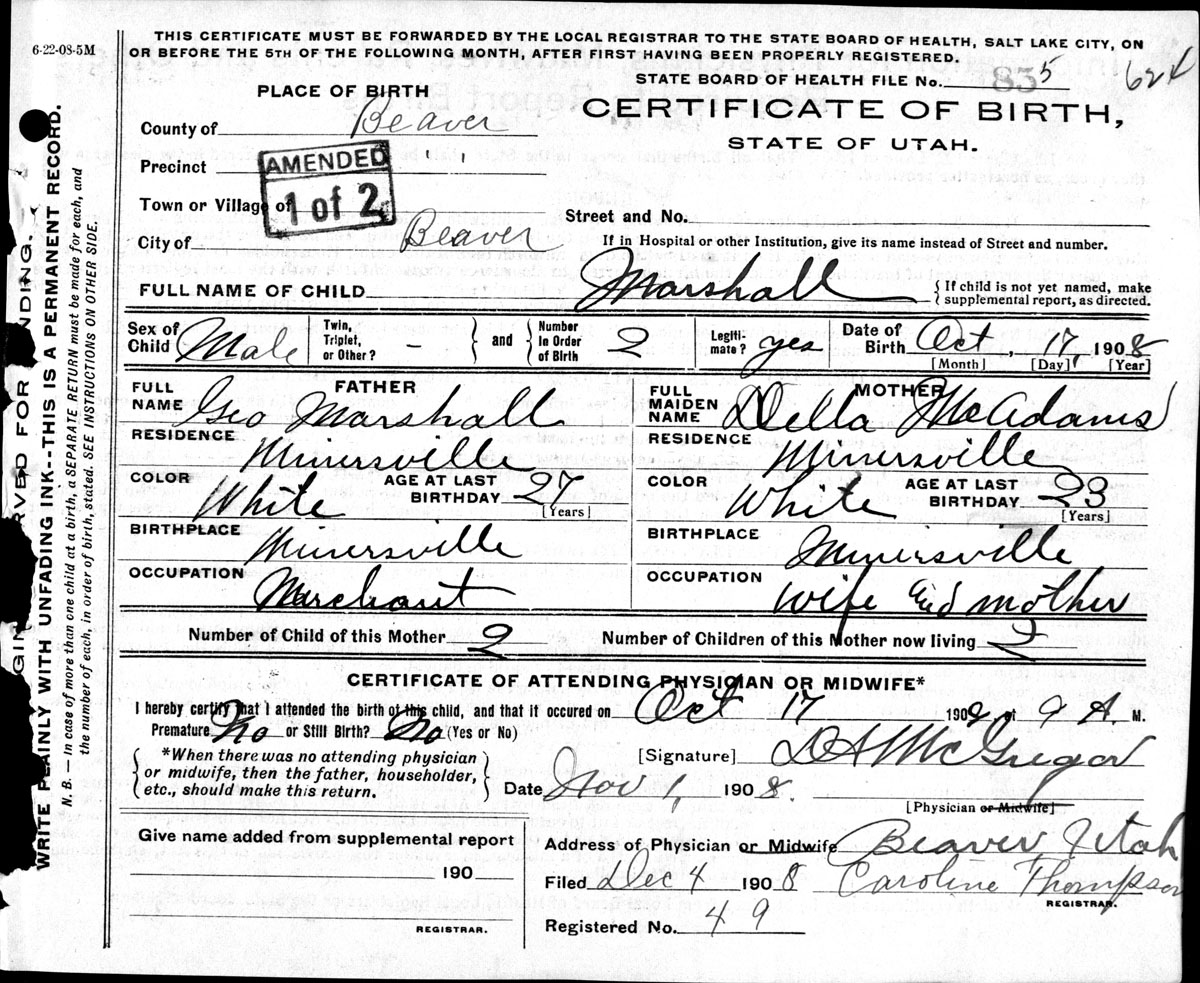 6-22-08-5M
THIS CERTIFICATE MUST BE FORWARDED BY THE LOCAL REGISTRAR TO THE STATE BOARD OF HEALTH, SALT LAKE CITY, ON
OR BEFORE THE 5TH OF THE FOLLOWING MONTH, AFTER FIRST HAVING BEEN PROPERLY REGISTERED.
STATE BOARD OF HEALTH FILE No. 835 624
PLACE OF BIRTH
CERTIFICATE OF BIRTH,
STATE OF UTAH.
County of Beaver
Precinct " "
AMENDED
1 of 2
Town or Village of
Street and No.
City of Beaver
If in Hospital or other Institution, give its name instead of Street and number.
FULL NAME OF CHILD Marshall
{ If child is not yet named, make
supplemental report, as directed.
Sex of Child Male
Twin, Triplet, or Other? -
and
Number in Order of Birth 2
Legitimate? yes
Date of Birth Oct, 17, 1908
[Month] [Day] [Year]
FATHER
FULL NAME Geo Marshall
RESIDENCE Minersville
COLOR White
AGE AT LAST BIRTHDAY 27 [Years]
BIRTHPLACE Minersville
OCCUPATION Merchant
MOTHER
FULL MAIDEN NAME Della McAdams
RESIDENCE Minersville
COLOR White
AGE AT LAST BIRTHDAY 23 [Years]
BIRTHPLACE Minersville
OCCUPATION Wife and mother
Number of Child of this Mother 2
Number of Children of this Mother now living 2
CERTIFICATE OF ATTENDING PHYSICIAN OR MIDWIFE*
I hereby certify that I attended the birth of this child, and that it occured on Oct 17 1908 at 9 A. M.
Premature No or Still Birth? No (Yes or No)
*When there was no attending physician
or midwife, then the father, householder,
etc., should make this return.
[Signature] D A McGregor
Date Nov 1, 1908.
[Physician or Midwife]
Give name added from supplemental report
190
REGISTRAR.
Address of Physician or Midwife Beaver Utah
Filed Dec 4 1908 Caroline Thompson
REGISTRAR.
Registered No. 49
WRITE PLAINLY WITH UNFADING INK--THIS IS A PERMANENT RECORD.
N. B. — In case of more than one child at a birth, a SEPARATE RETURN must be made for each, and
the number of each, in order of birth, stated. SEE INSTRUCTIONS ON OTHER SIDE.